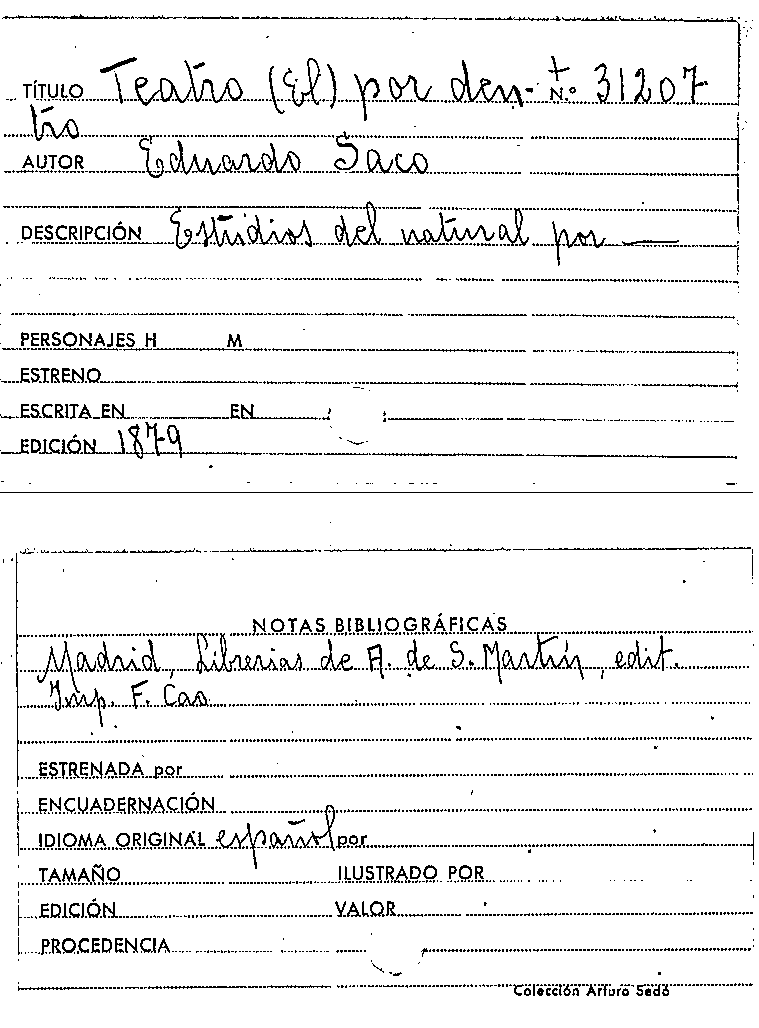 TÍTULO Teatro (El) por den- + N.º 31207
tro
AUTOR Eduardo Saco
DESCRIPCIÓN Estudios del natural por —
PERSONAJES H M
ESTRENO
ESCRITA EN EN
EDICIÓN 1879
NOTAS BIBLIOGRÁFICAS
Madrid, Librerias de A. de S. Martín, edit.
Imp. F. Cao
ESTRENADA por
ENCUADERNACIÓN
IDIOMA ORIGINAL español por
TAMAÑO ILUSTRADO POR
EDICIÓN VALOR
PROCEDENCIA
Colección Arturo Sedó